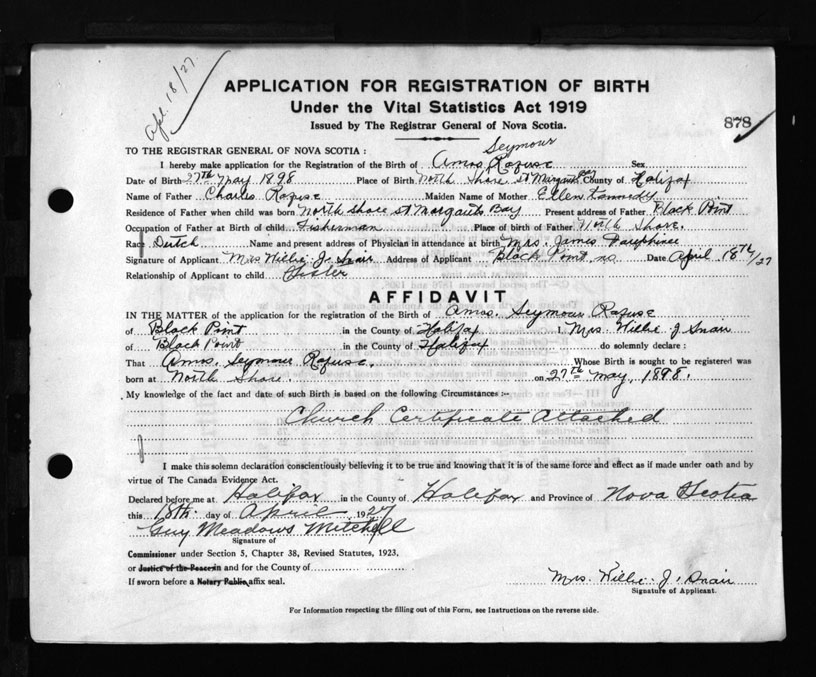 Apl. 18/27
APPLICATION FOR REGISTRATION OF BIRTH
Under the Vital Statistics Act 1919
Issued by The Registrar General of Nova Scotia.
878
TO THE REGISTRAR GENERAL OF NOVA SCOTIA :
Seymour
I hereby make application for the Registration of the Birth of Amos Rafuse Sex
Date of Birth 27th May 1898 Place of Birth North Shore St Margarets Bay County of Halifax
Name of Father Charles Rafuse Maiden Name of Mother Ellen Kennedy
Residence of Father when child was born North Shore St Margarets Bay Present address of Father Black Point
Occupation of Father at Birth of child Fisherman Place of birth of Father North Shore.
Race Dutch Name and present address of Physician in attendance at birth Mrs. James Dauphinee
Signature of Applicant Mrs Willie J. Snair Address of Applicant Black Point, N.S. Date April 18th/27
Relationship of Applicant to child Sister
AFFIDAVIT
IN THE MATTER of the application for the registration of the Birth of Amos. Seymour Rafuse
of Black Point in the County of Halifax I, Mrs. Willie J Snair
of Black Point in the County of Halifax do solemnly declare :
That Amos. Seymour Rafuse. Whose Birth is sought to be registered was
born at North Shore. on 27th May, 1898.
My knowledge of the fact and date of such Birth is based on the following Circumstances :-
Church Certificate Attached
I make this solemn declaration conscientiously believing it to be true and knowing that it is of the same force and effect as if made under oath and by
virtue of The Canada Evidence Act.
Declared before me at Halifax in the County of Halifax and Province of Nova Scotia
this 18th. day of April 1927
Guy Meadows Mitchell
Signature of
Commissioner under Section 5, Chapter 38, Revised Statutes, 1923,
or Justice of the Peace in and for the County of
If sworn before a Notary Public, affix seal.
Mrs. Willie. J. Snair
Signature of Applicant.
For Information respecting the filling out of this Form, see Instructions on the reverse side.